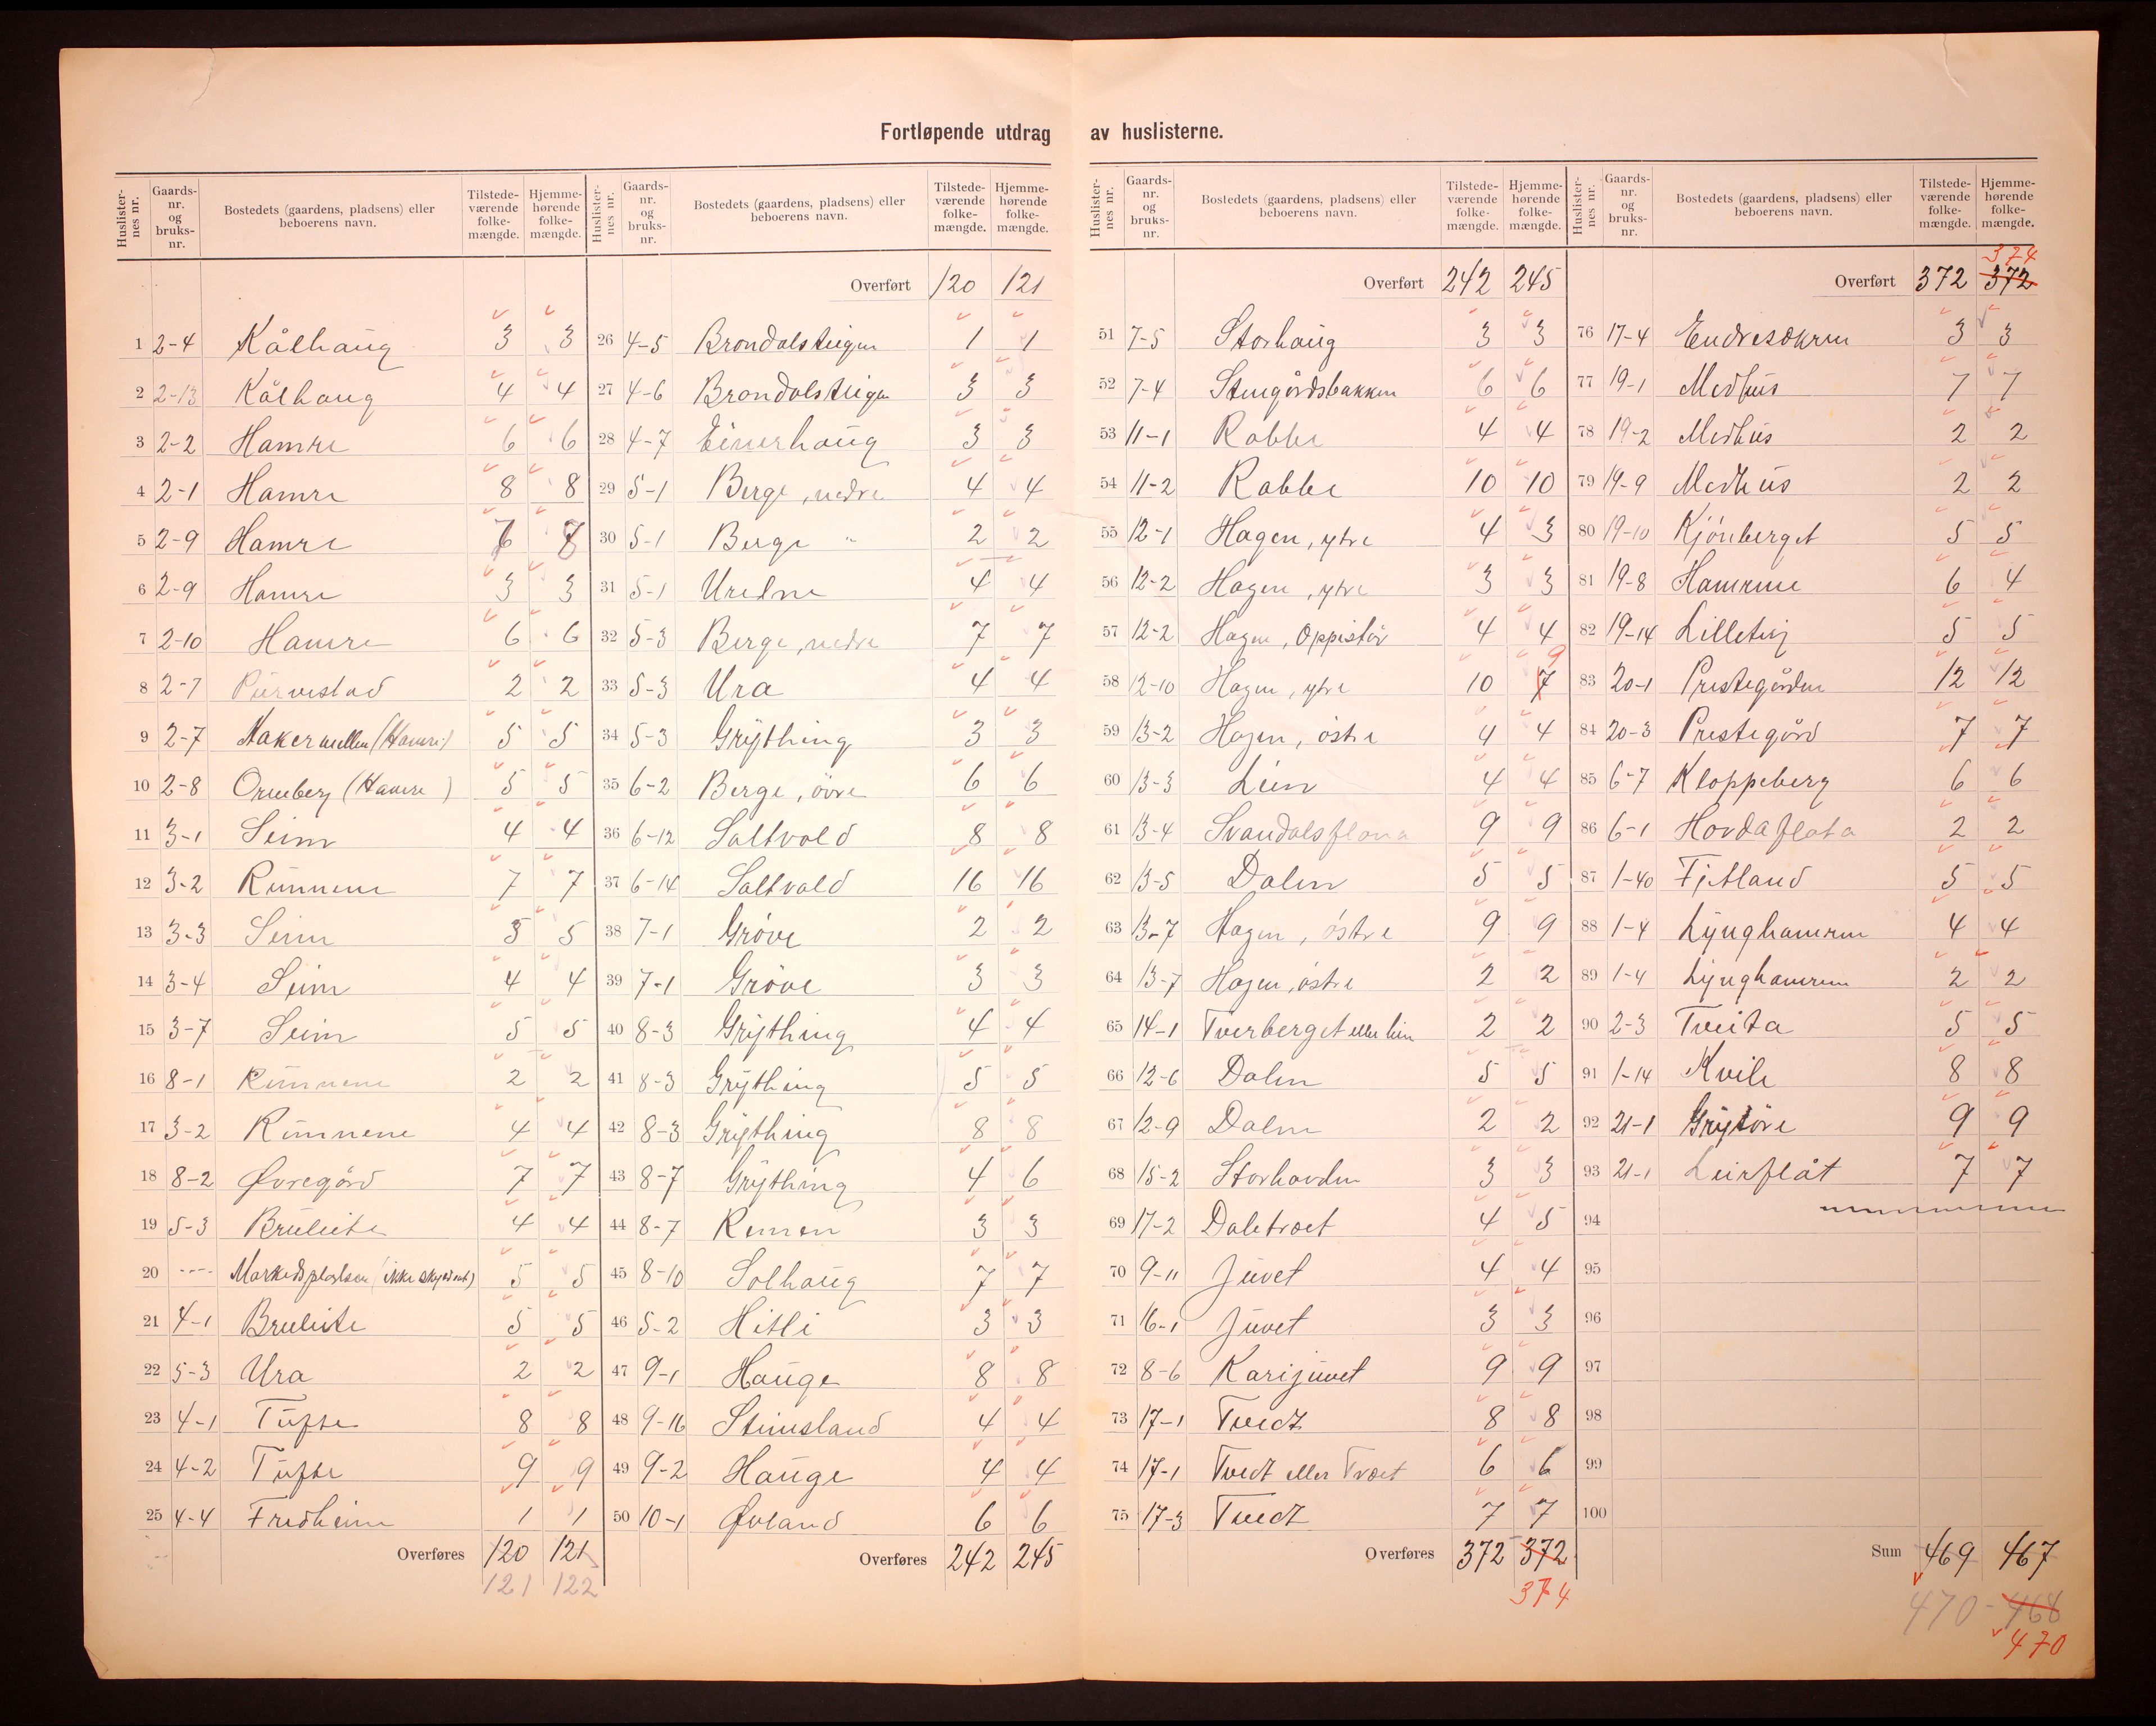 Fortløpende utdrag av huslisterne.
Huslisternes nr. Gaardsnr. og bruksnr. Bostedets (gaardens, pladsens) eller beboerens navn. Tilstedeværende folkemængde. Hjemmehørende folkemængde.
1 2-4 Kålhaug 3 3
2 2-13 Kålhaug 4 4
3 2-2 Hamre 6 6
4 2-1 Hamre 8 8
5 2-9 Hamre 7
6 2-9 Hamre 3 3
7 2-10 Hamre 6 6
8 2-7 2 2
9 2-7 (Hamre) 5 5
10 2-8 Ormberg (Hamre) 5 5
11 3-1 Seim 4 4
12 3-2 Rünnene 7 7
13 3-3 Seim 5 5
14 3-4 Seim 4 4
15 3-7 Seim 5 5
16 8-1 Rünnene 2 2
17 3-2 Rünnene 4 4
18 8-2 Øvregård 7 7
19 5-3 Bruleite 4 4
20 ---- Markedspladsen (ikke skyldsat) 5 5
21 4-1 Bruleite 5 5
22 5-3 Ura 2 2
23 4-1 Tüfte 8 8
24 4-2 Tüfte 9 9
25 4-4 Fredheim 1 1
Overføres 120 121
121 122
Huslisternes nr. Gaardsnr. og bruksnr. Bostedets (gaardens, pladsens) eller beboerens navn. Tilstedeværende folkemængde. Hjemmehørende folkemængde.
Overført 120 121
26 4-5 Brondalsteigen 1 1
27 4-6 Brondalsteigen 3 3
28 4-7 Einerhaüg 3 3
29 5-1 Berge, nedre 4 4
30 5-1 Berge " 2 2
31 5-1 Uredne 4 4
32 5-3 Berge, nedre 7 7
33 5-3 Ura 4 4
34 5-3 Grÿthing 3 3
35 6-2 Berge, övre 6 6
36 6-12 Saltvold 8 8
37 6-14 Saltvold 16 16
38 7-1 Gröve 2 2
39 7-1 Gröve 3 3
40 8-3 Grÿthing 4 4
41 8-3 Grÿthing 5 5
42 8-3 Grÿthing 8 8
43 8-7 Grÿthing 4 6
44 8-7 Remen 3 3
45 8-10 Solhaüg 7 7
46 5-2 Hitli 3 3
47 9-1 Haüge 8 8
48 9-16 Steinsland 4 4
49 9-2 Haüge 4 4
50 10-1 Øvland 6 6
Overføres 242 245
Huslisternes nr. Gaardsnr. og bruksnr. Bostedets (gaardens, pladsens) eller beboerens navn. Tilstedeværende folkemængde. Hjemmehørende folkemængde.
Overført 242 245
51 7-5 Storhaug 3 3
52 7-4 Stengårdsbakken 6 6
53 11-1 Rabbe 4 4
54 11-2 Rabbe 10 10
55 12-1 Hagen, ytre 4 3
56 12-2 Hagen, ytre 3 3
57 12-2 Hagen, Oppistöv 4 4
58 12-10 Hagen, ytre 10 7 9
59 13-2 Hagen, östre 4 4
60 13-3 Lien 4 4
61 13-4 Svandalsflona 9 9
62 13-5 Dalen 5 5
63 13-7 Hagen, östre 9 9
64 13-7 Hagen, östre 2 2
65 14-1 Tverberget eller Lien 2 2
66 12-6 Dalen 5 5
67 12-9 Dalen 2 2
68 15-2 Storhorden 3 3
69 17-2 Daletræet 4 5
70 9-11 Juvet 4 4
71 16-1 Juvet 3 3
72 8-6 Karijuvet 9 9
73 17-1 Tvedt 8 8
74 17-1 Tvedt eller Træet 6 6
75 17-3 Tvedt 7 7
Overføres 372 372
374
Huslisternes nr. Gaardsnr. og bruksnr. Bostedets (gaardens, pladsens) eller beboerens navn. Tilstedeværende folkemængde. Hjemmehørende folkemængde.
374
Overført 372 372
76 17-4 Endresökren 3 3
77 19-1 Medhüs 7 7
78 19-2 Medhüs 2 2
79 19-9 Medhüs 2 2
80 19-10 Kjönberget 5 5
81 19-8 Hamrene 6 4
82 19-14 Lilletvej 5 5
83 20-1 Prestegården 12 12
84 20-3 Prestegård 7 7
85 6-7 Kloppeberg 6 6
86 6-1 Hordaflata 2 2
87 1-40 Fjetland 5 5
88 1-4 Lynghamren 4 4
89 1-4 Lynghamren 2 2
90 2-3 Tveita 5 5
91 1-14 Kvile 8 8
92 21-1 Grÿtöre 9 9
93 21-1 Leirflåt 7 7
94
95
96
97
98
99
100
Sum 469 467
470 - 468
470